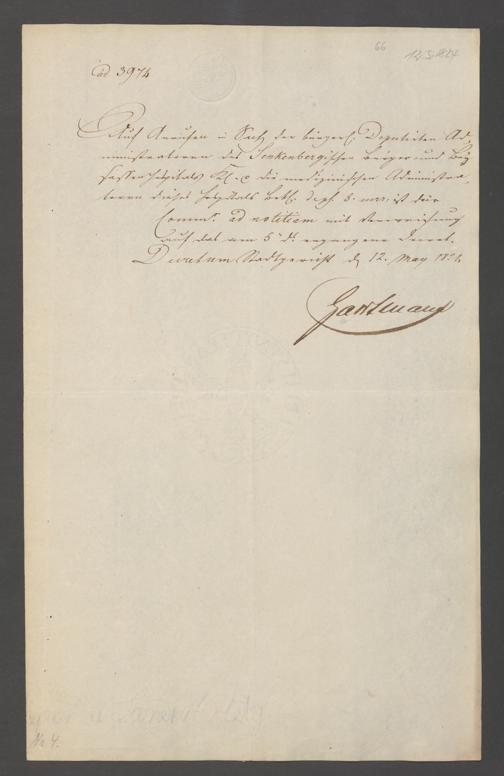 66
12.5.1824
ad 3974
Auf Anrufen in Sach der bürgerl. Deputirten Ad-
ministratoren des Senkenbergischen Bürger und Bey-
sassen Hospitals die medizinischen Administra-
toren dieses Hospitals betr. ist die
Comm. ad notitiam mit Verweisung
auf das am 5 d. ergangene Decret.
Decretum Stadtgericht d. 12. May 1824.
Hartmann
No 4.